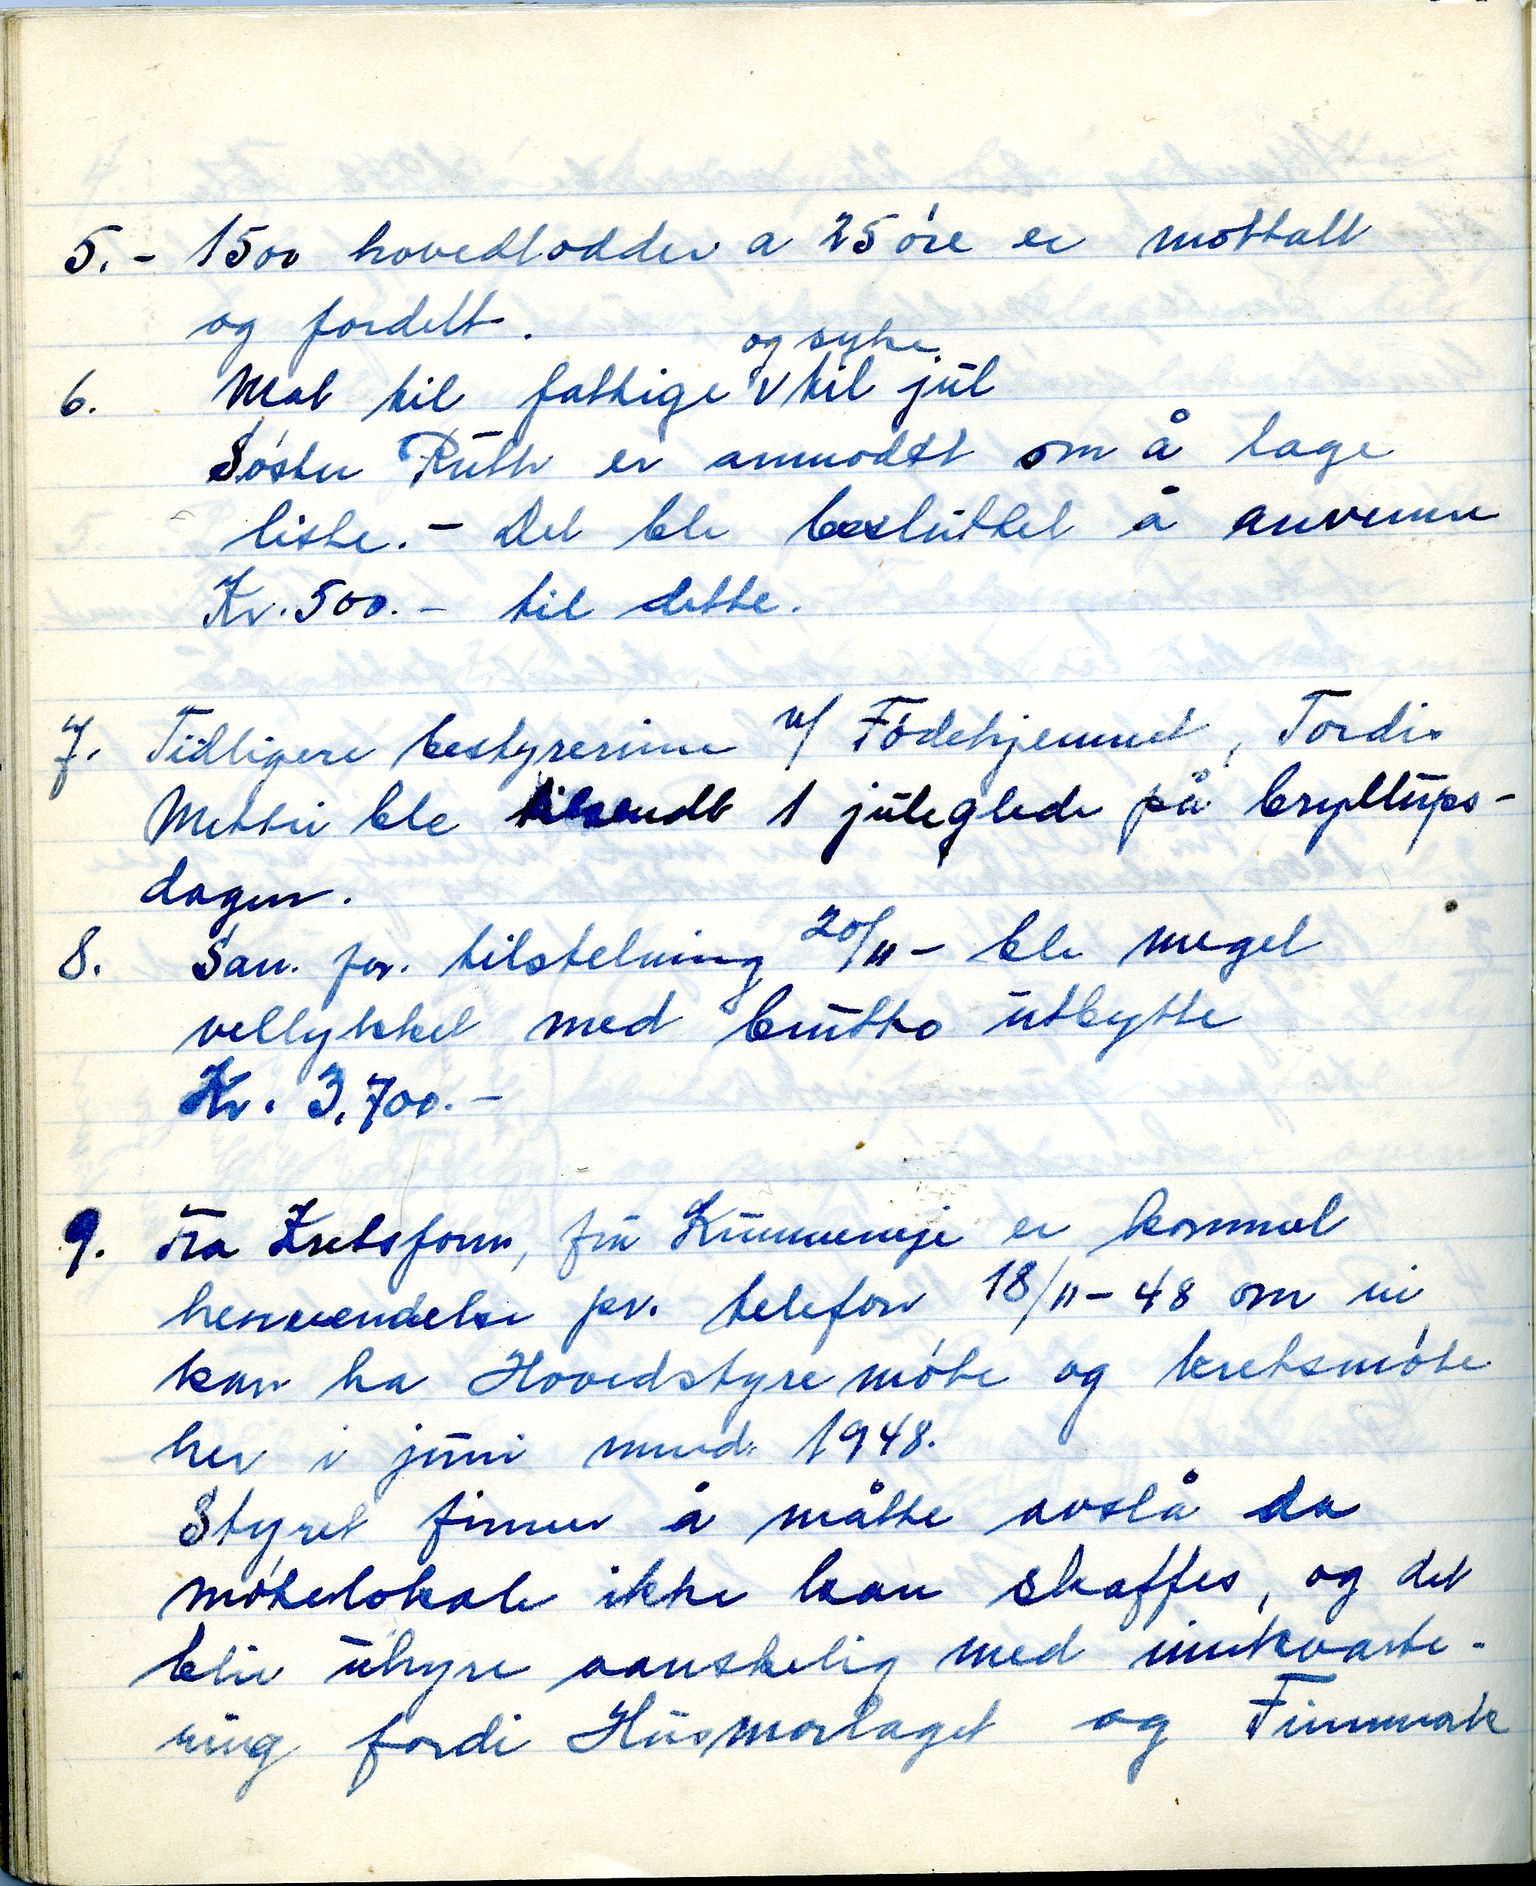 5. - 1500 hovedlodder a 25 øre er mottatt
og fordelt.
6. Mat til fattige og syke til jul
Søster Ruth er anmodet om å lage
liste. - Det ble besluttet å anvenne
Kr. 500.- til dette.
7. Tidligere bestyrerinne v/ Fødehjemmet, Tordis
ble tilsendt 1 juleglede på bryllups-
dagen.
8. San. for. tilstelning 20/11 - ble meget
vellykket med brutto utbytte
Kr. 3,700.-
9. Fra Kretsform, fru Kummeneje er kommet
henvendelse pr. telefon 18/11-48 om vi
kan ha Hovedstyremøte og kretsmøte
her i juni mnd. 1948.
Styret finner å måtte avslå da
møtelokale ikke kan skaffes, og det
blir uhyre vanskelig med innkvarte-
ring fordi Husmorlaget og Finnmark